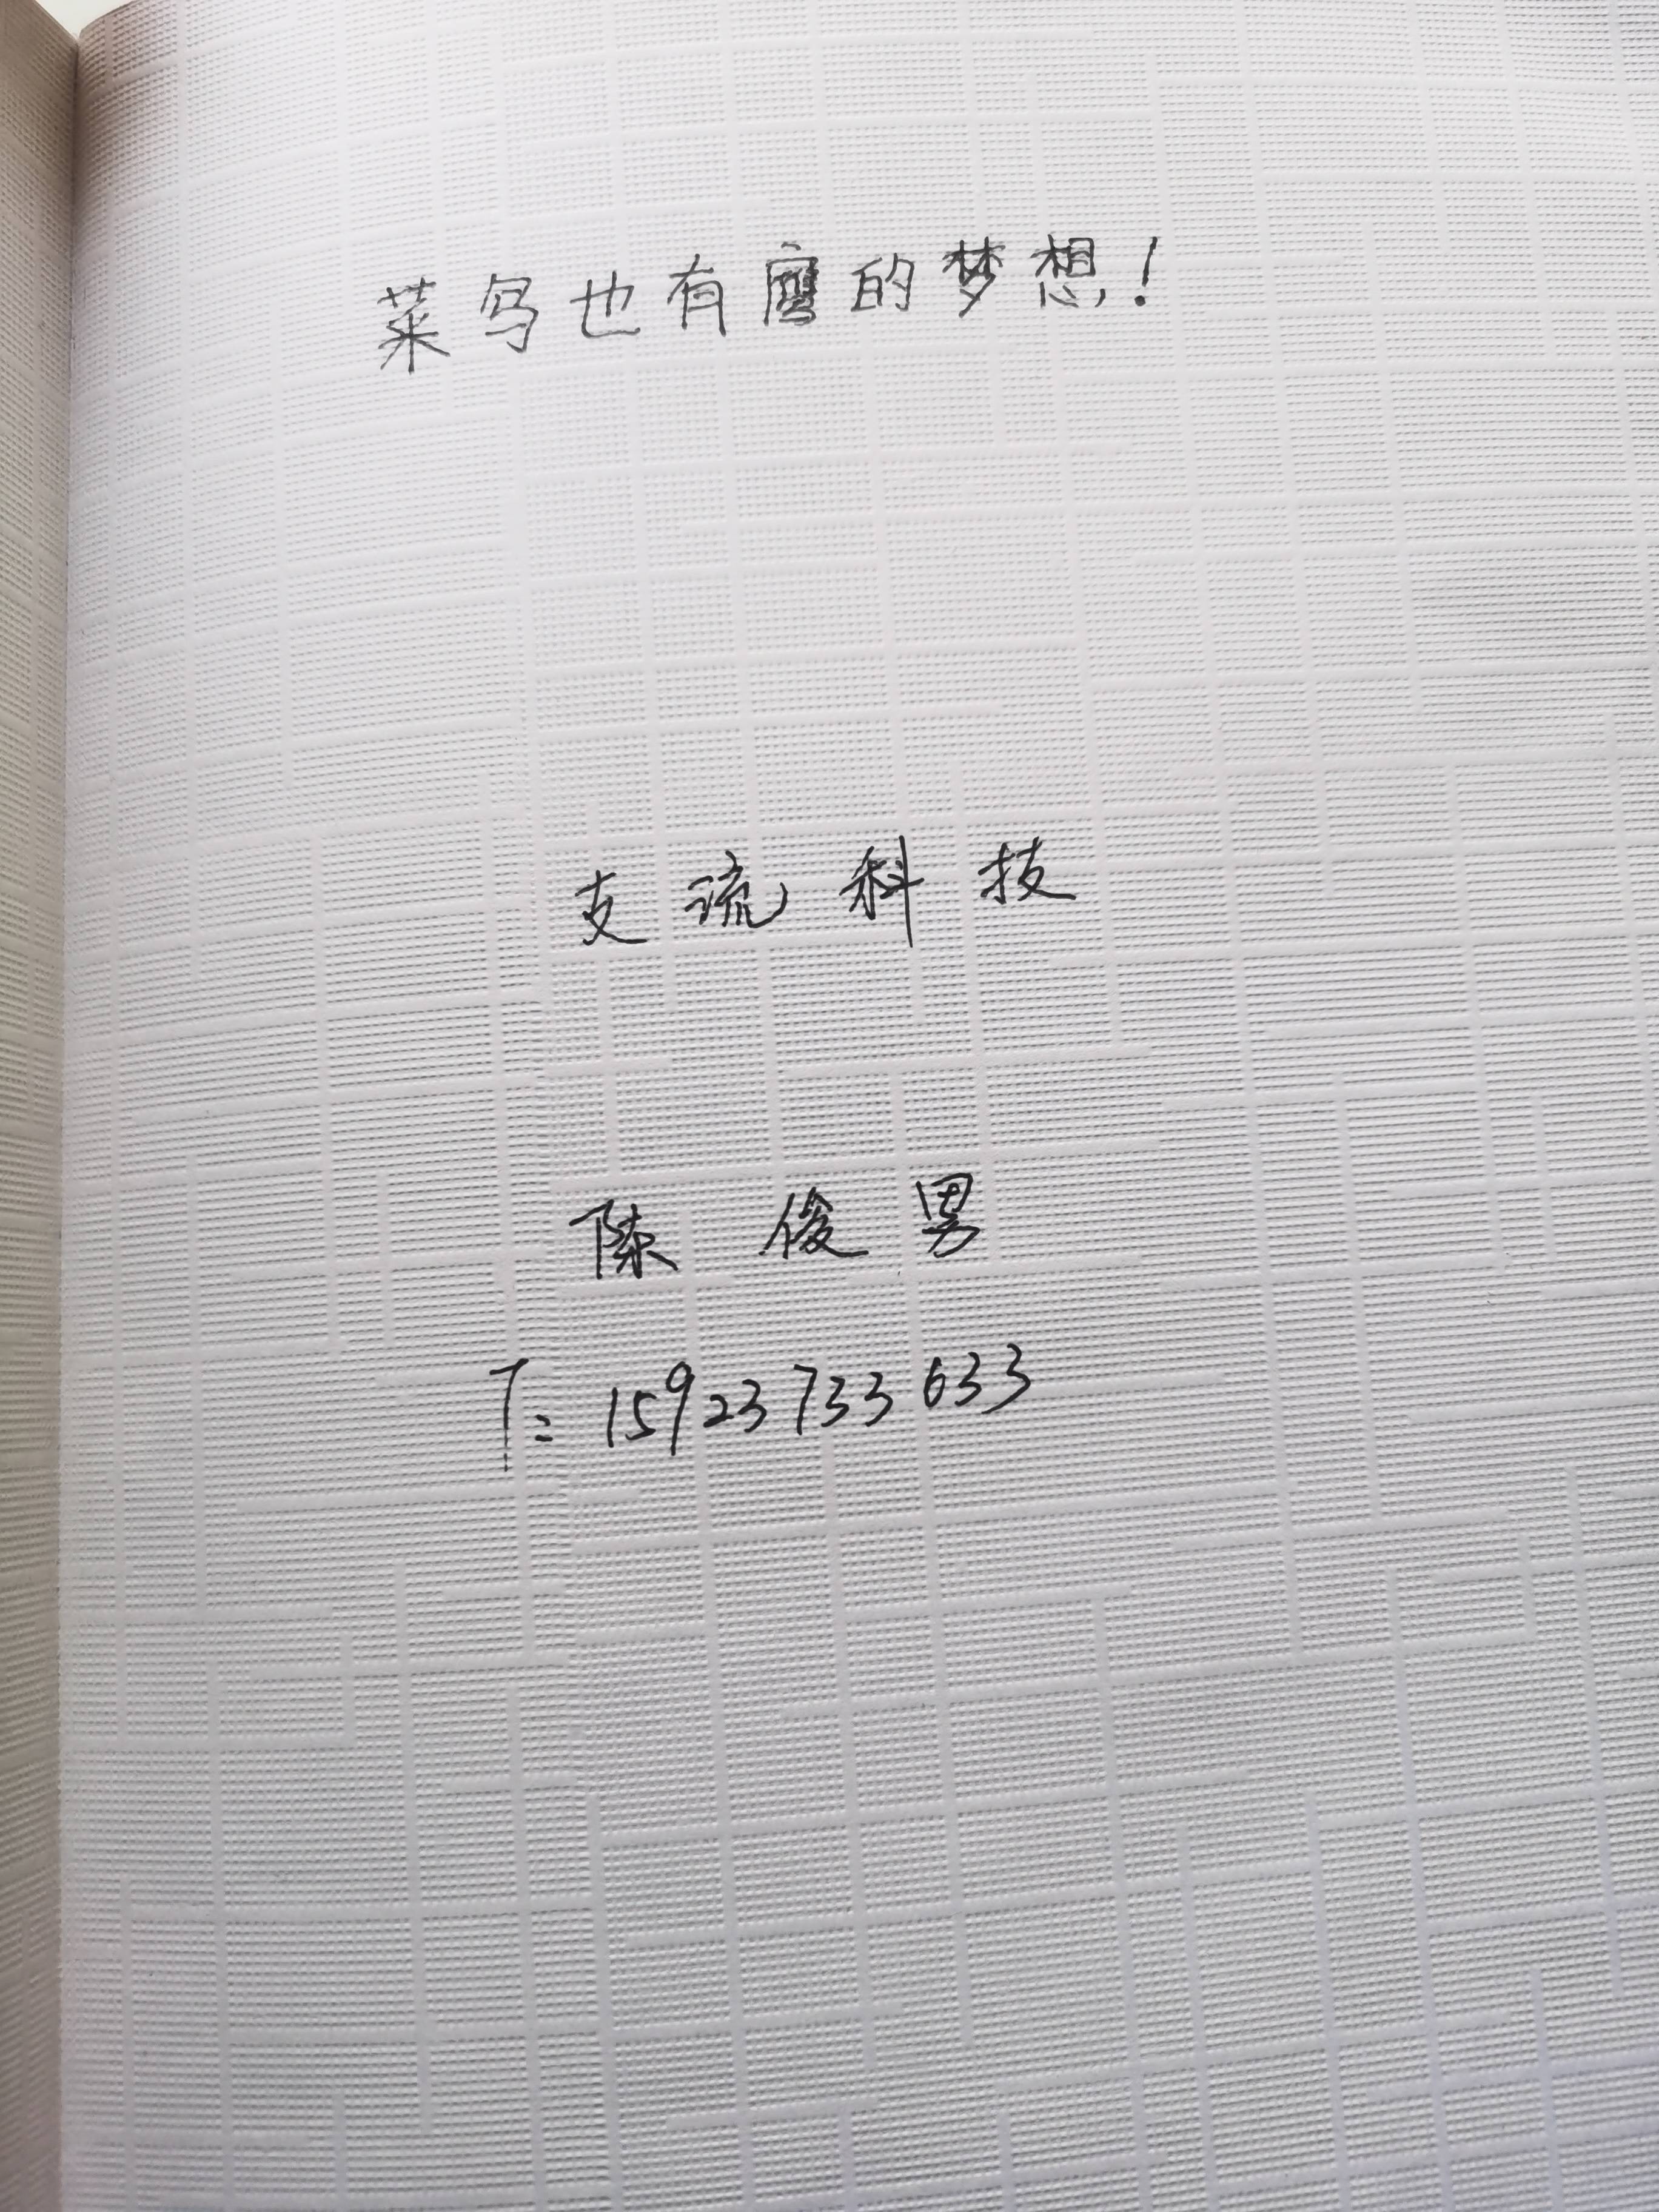 菜鸟也有鹰的梦想！
支流科技
陈俊男
T：15923733633